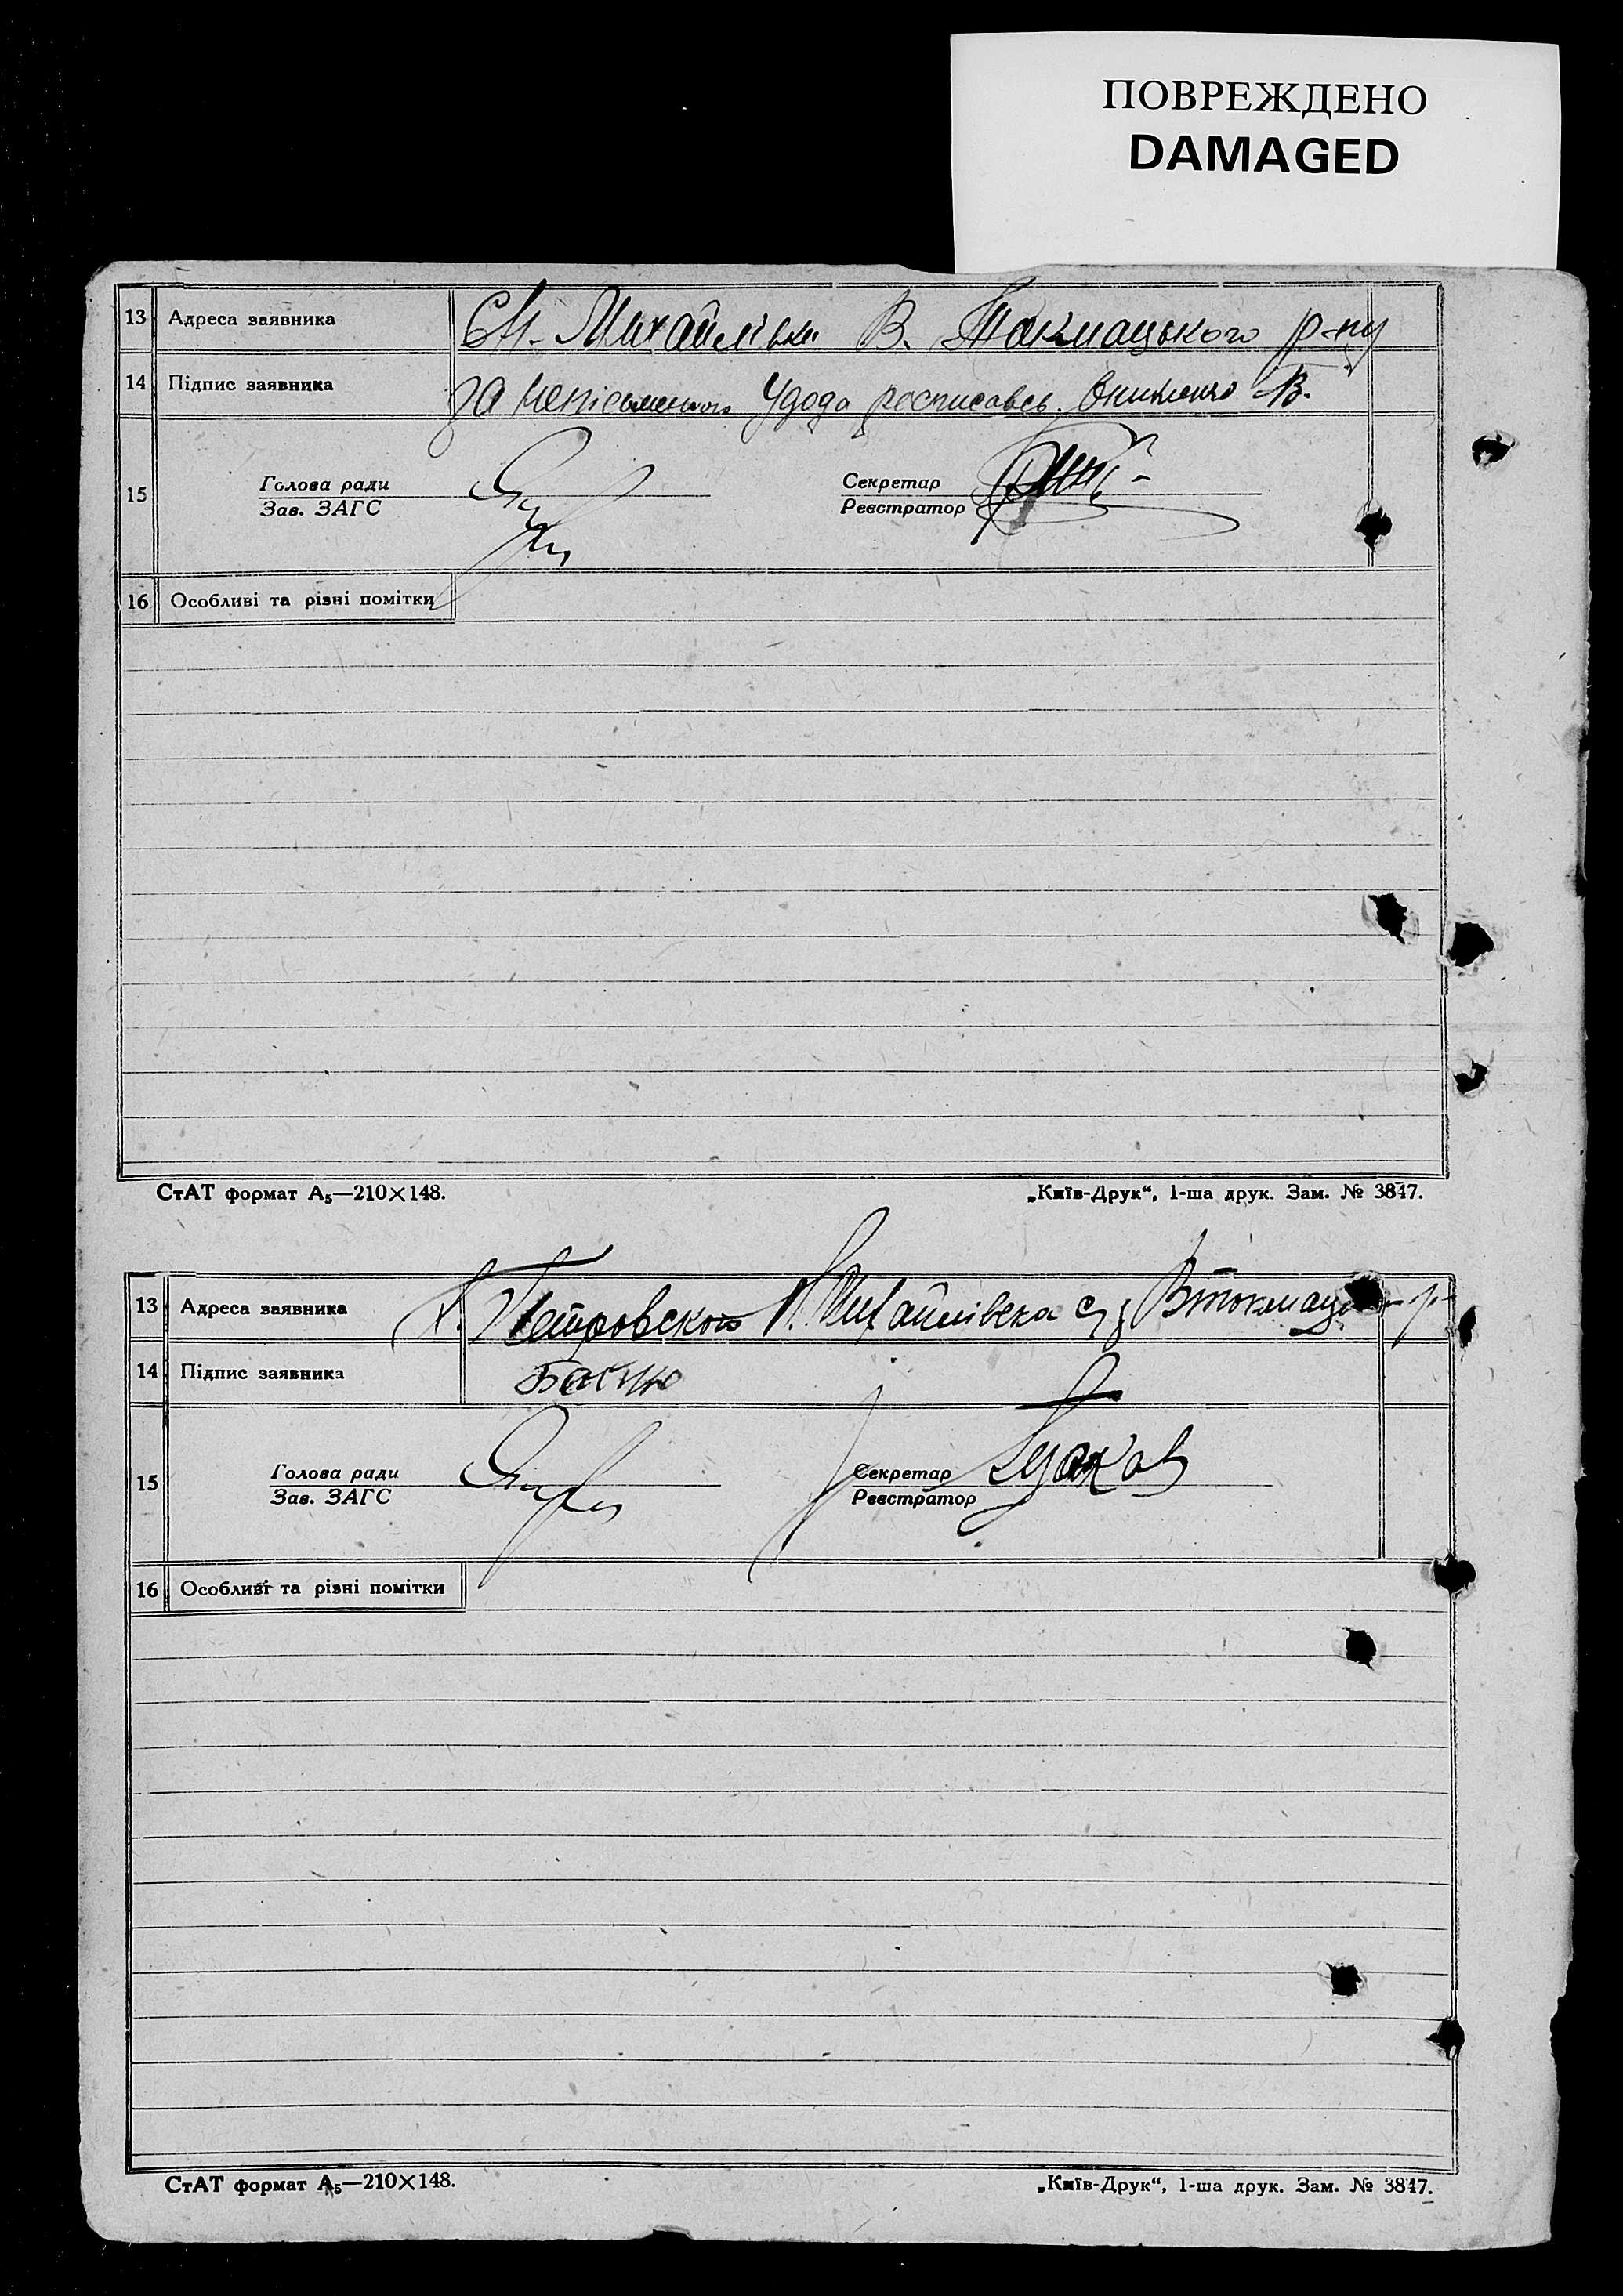 ПОВРЕЖДЕНО
DAMAGED
13 Адреса заявника Ст. Михайлівка В. Токмацького р-ну
14 Підпис заявника за непісьменного Удода росписавсь В.
15 Голова ради Секретар
Зав. ЗАГС Реєстратор
16 Особливі та різні помітки
СтАТ формат А₅—210×148. „Київ-Друк“, 1-ша друк. Зам. № 3847.
13 Адреса заявника Петровского Михайлівска с/р Втокмац
14 Підпис заявника
15 Голова ради Секретар
Зав. ЗАГС Реєстратор
16 Особливі та різні помітки
СтАТ формат А₅—210×148. „Київ-Друк“, 1-ша друк. Зам. № 3847.